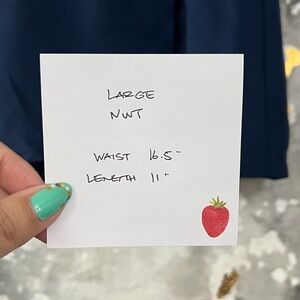 LARGE
NWT
WAIST 16.5"
LENGTH 11"